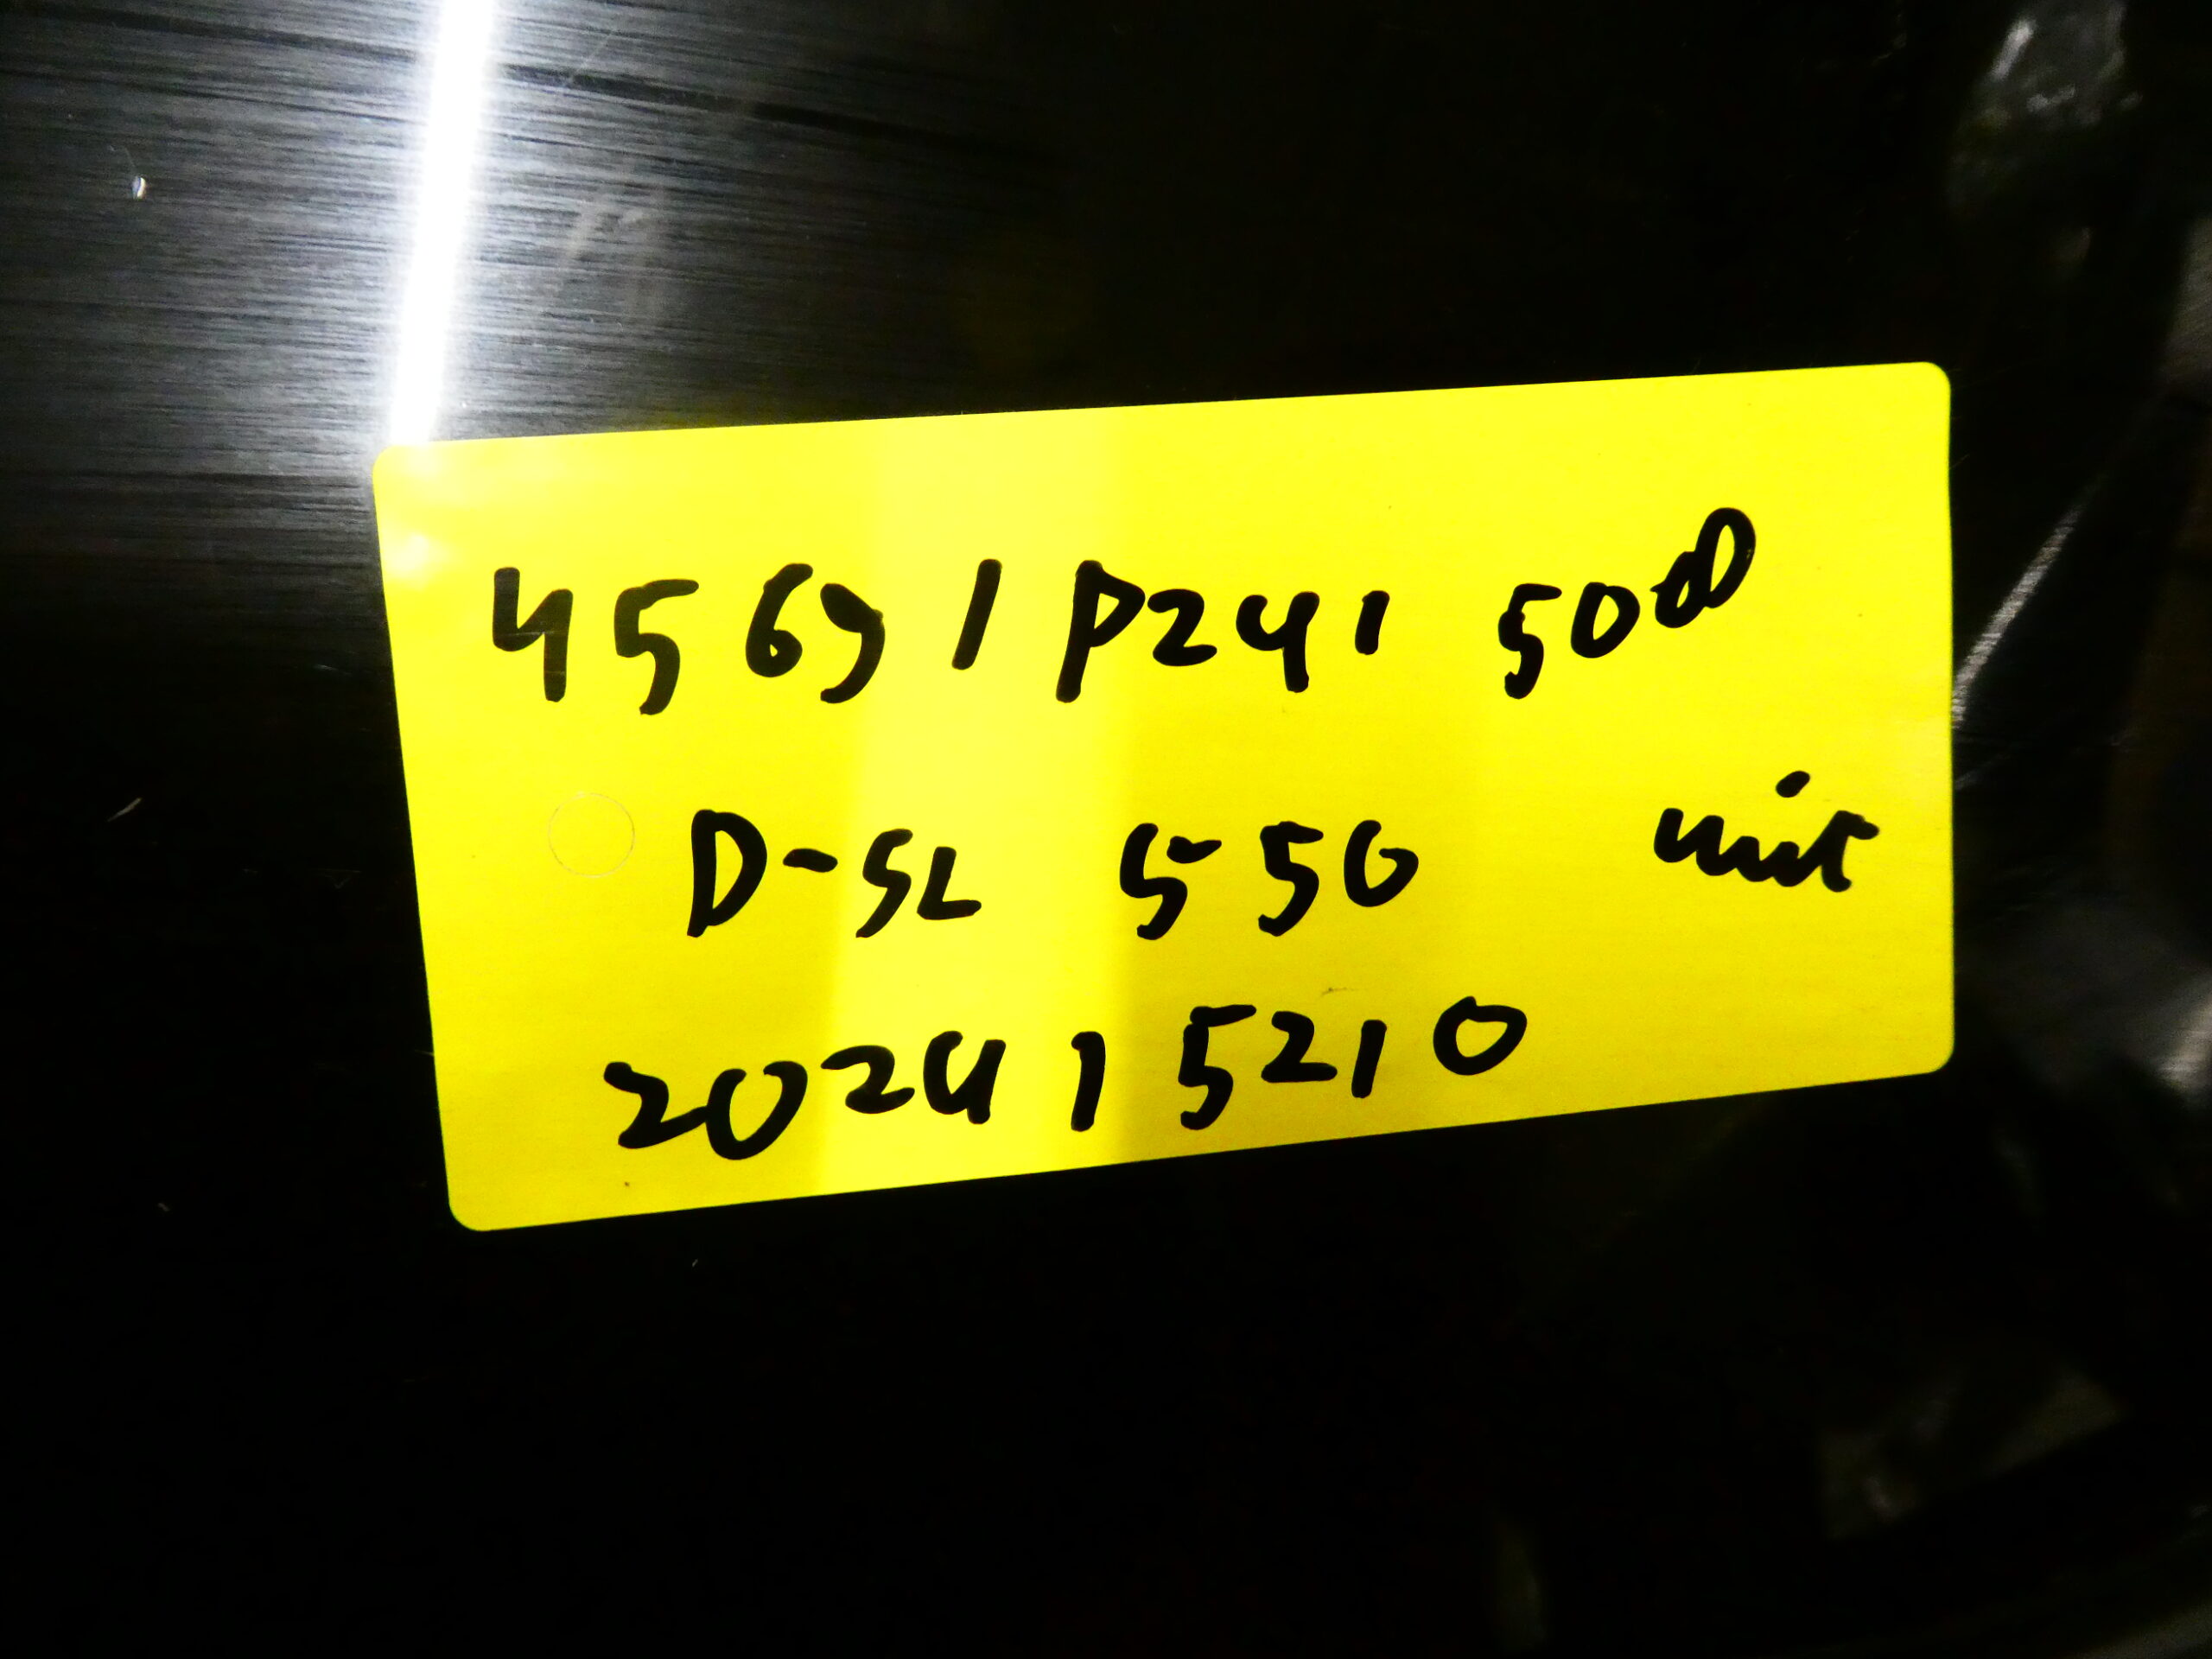 45691P241 5000
D-SL 550 mit
202415210